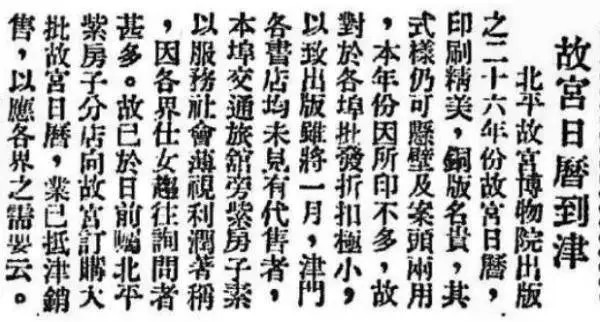 故宮日曆到津
北平故宮博物院出版
之二十六年份故宮日曆，
印刷精美，銅版名貴，其
式樣仍可懸壁及案頭兩用
，本年份因所印不多，故
對於各埠批發折扣極小，
以致出版雖將一月，津門
各書店均未見有代售者，
本埠交通旅舘旁紫房子素
以服務社會薄視利潤著稱
，因各界仕女趨往詢問者
甚多。故已於日前囑北平
紫房子分店向故宮訂購大
批故宮日曆，業已抵津銷
售，以應各界之需要云。